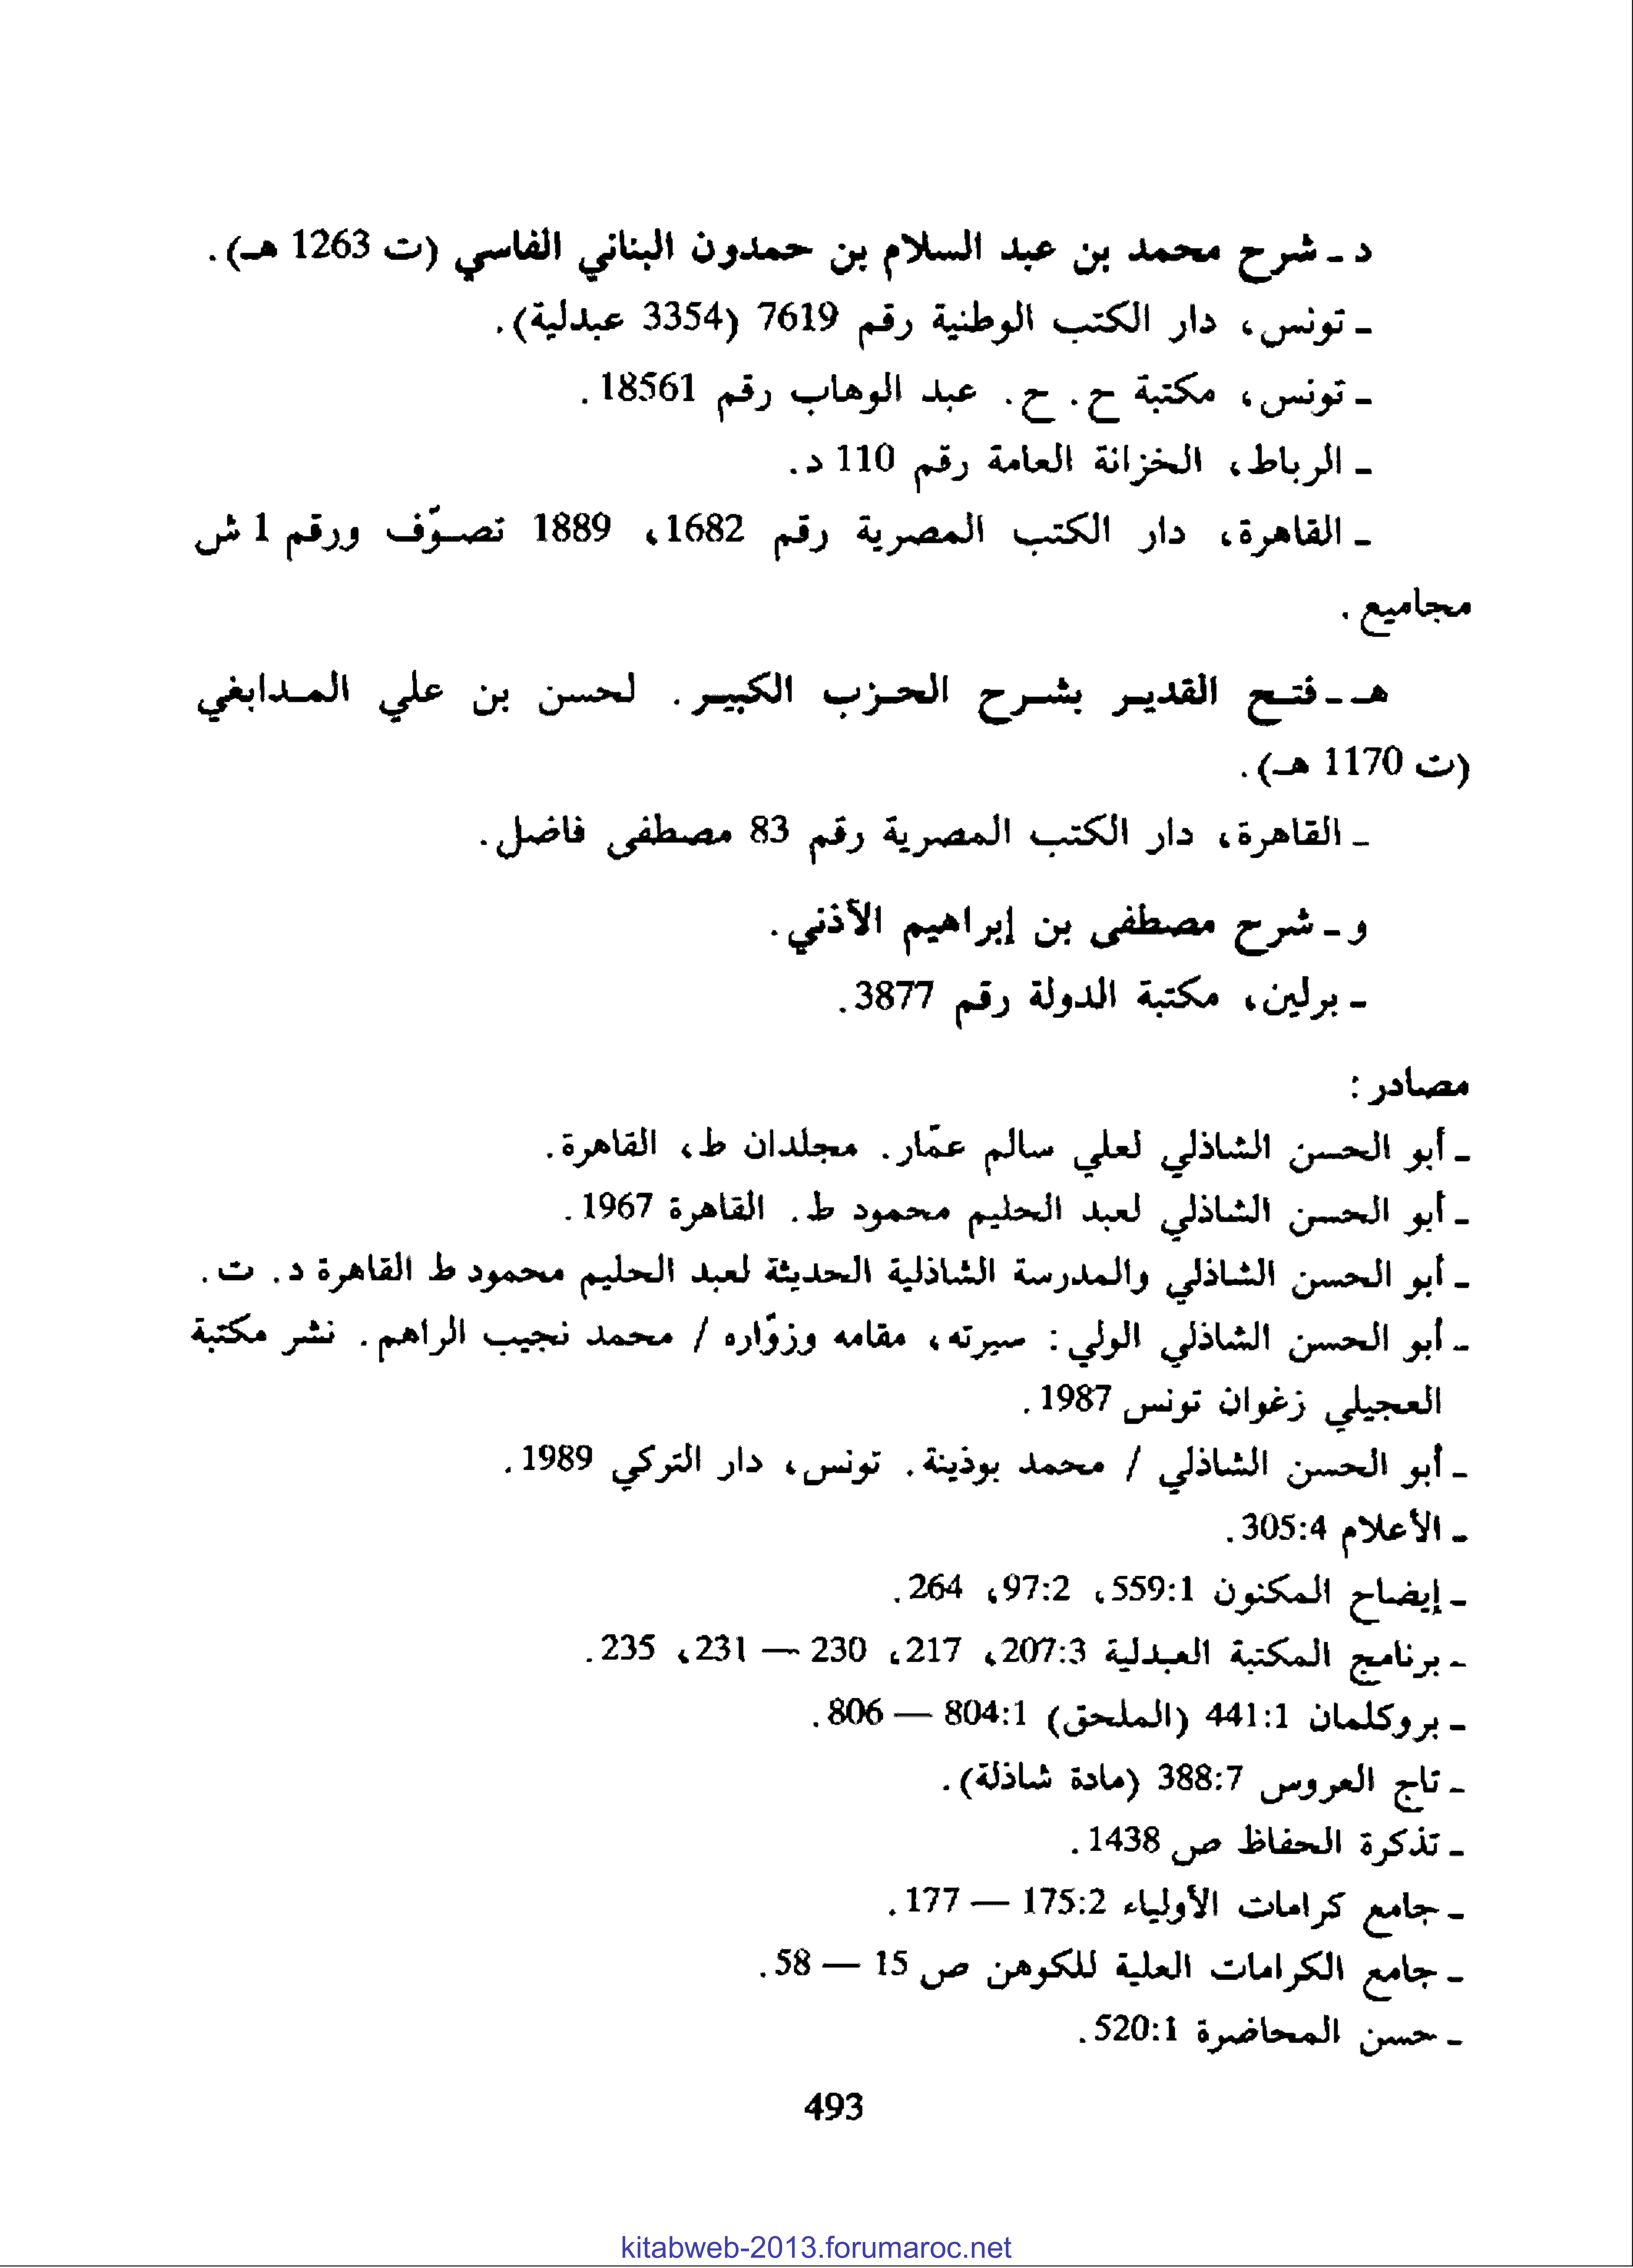 د - شرح محمد بن عبد السلام بن حمدون البناني الفاسي (ت 1263 هـ).
- تونس، دار الكتب الوطنية رقم 7619 (3354 عبدلية).
- تونس، مكتبة ح. ح. عبد الوهاب رقم 18561.
- الرباط، الخزانة العامة رقم 110 د.
- القاهرة، دار الكتب المصرية رقم 1682، 1889 تصوّف ورقم 1 ش
مجاميع.
هـ - فتح القدير بشرح الحزب الكبير. لحسن بن علي المدابغي
(ت 1170 هـ).
- القاهرة، دار الكتب المصرية رقم 83 مصطفى فاضل.
و - شرح مصطفى بن إبراهيم الآذني.
- برلين، مكتبة الدولة رقم 3877.
مصادر:
- أبو الحسن الشاذلي لعلي سالم عمّار. مجلدان ط، القاهرة.
- أبو الحسن الشاذلي لعبد الحليم محمود ط. القاهرة 1967.
- أبو الحسن الشاذلي والمدرسة الشاذلية الحديثة لعبد الحليم محمود ط القاهرة د. ت.
- أبو الحسن الشاذلي الولي: سيرته، مقامه وزوّاره / محمد نجيب الراهم. نشر مكتبة
العجيلي زغوان تونس 1987.
- أبو الحسن الشاذلي / محمد بوذينة. تونس، دار التركي 1989.
- الأعلام 305:4.
- إيضاح المكنون 559:1، 97:2، 264.
- برنامج المكتبة العبدلية 207:3، 217، 230 — 231، 235.
- بروكلمان 441:1 (الملحق) 804:1 — 806.
- تاج العروس 388:7 (مادة شاذلة).
- تذكرة الحفاظ ص 1438.
- جامع كرامات الأولياء 175:2 — 177.
- جامع الكرامات العلية للكوهن ص 15 — 58.
- حسن المحاضرة 520:1.
493
kitabweb-2013.forumaroc.net